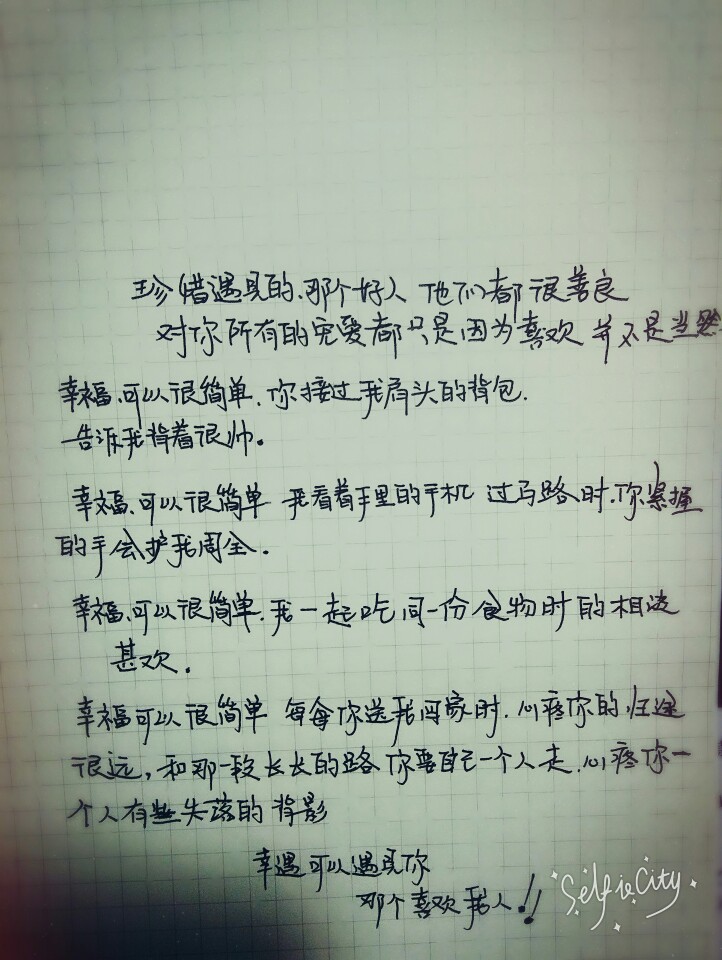 珍惜遇见的、那个好人 他们都很善良
对你所有的宠爱都只是因为喜欢 并不是当然
幸福、可以很简单、你接过我肩头的背包、
告诉我背着很帅。
幸福、可以很简单 我看着手里的手机 过马路时、你紧握
的手会护我周全。
幸福、可以很简单、我一起吃同一份食物时的相谈
甚欢。
幸福可以很简单 每每你送我回家时、心疼你的归途
很远，和那一段长长的路你要自己一个人走、心疼你一
个人有些失落的背影
幸遇可以遇见你
那个喜欢我人!!
SelfieCity